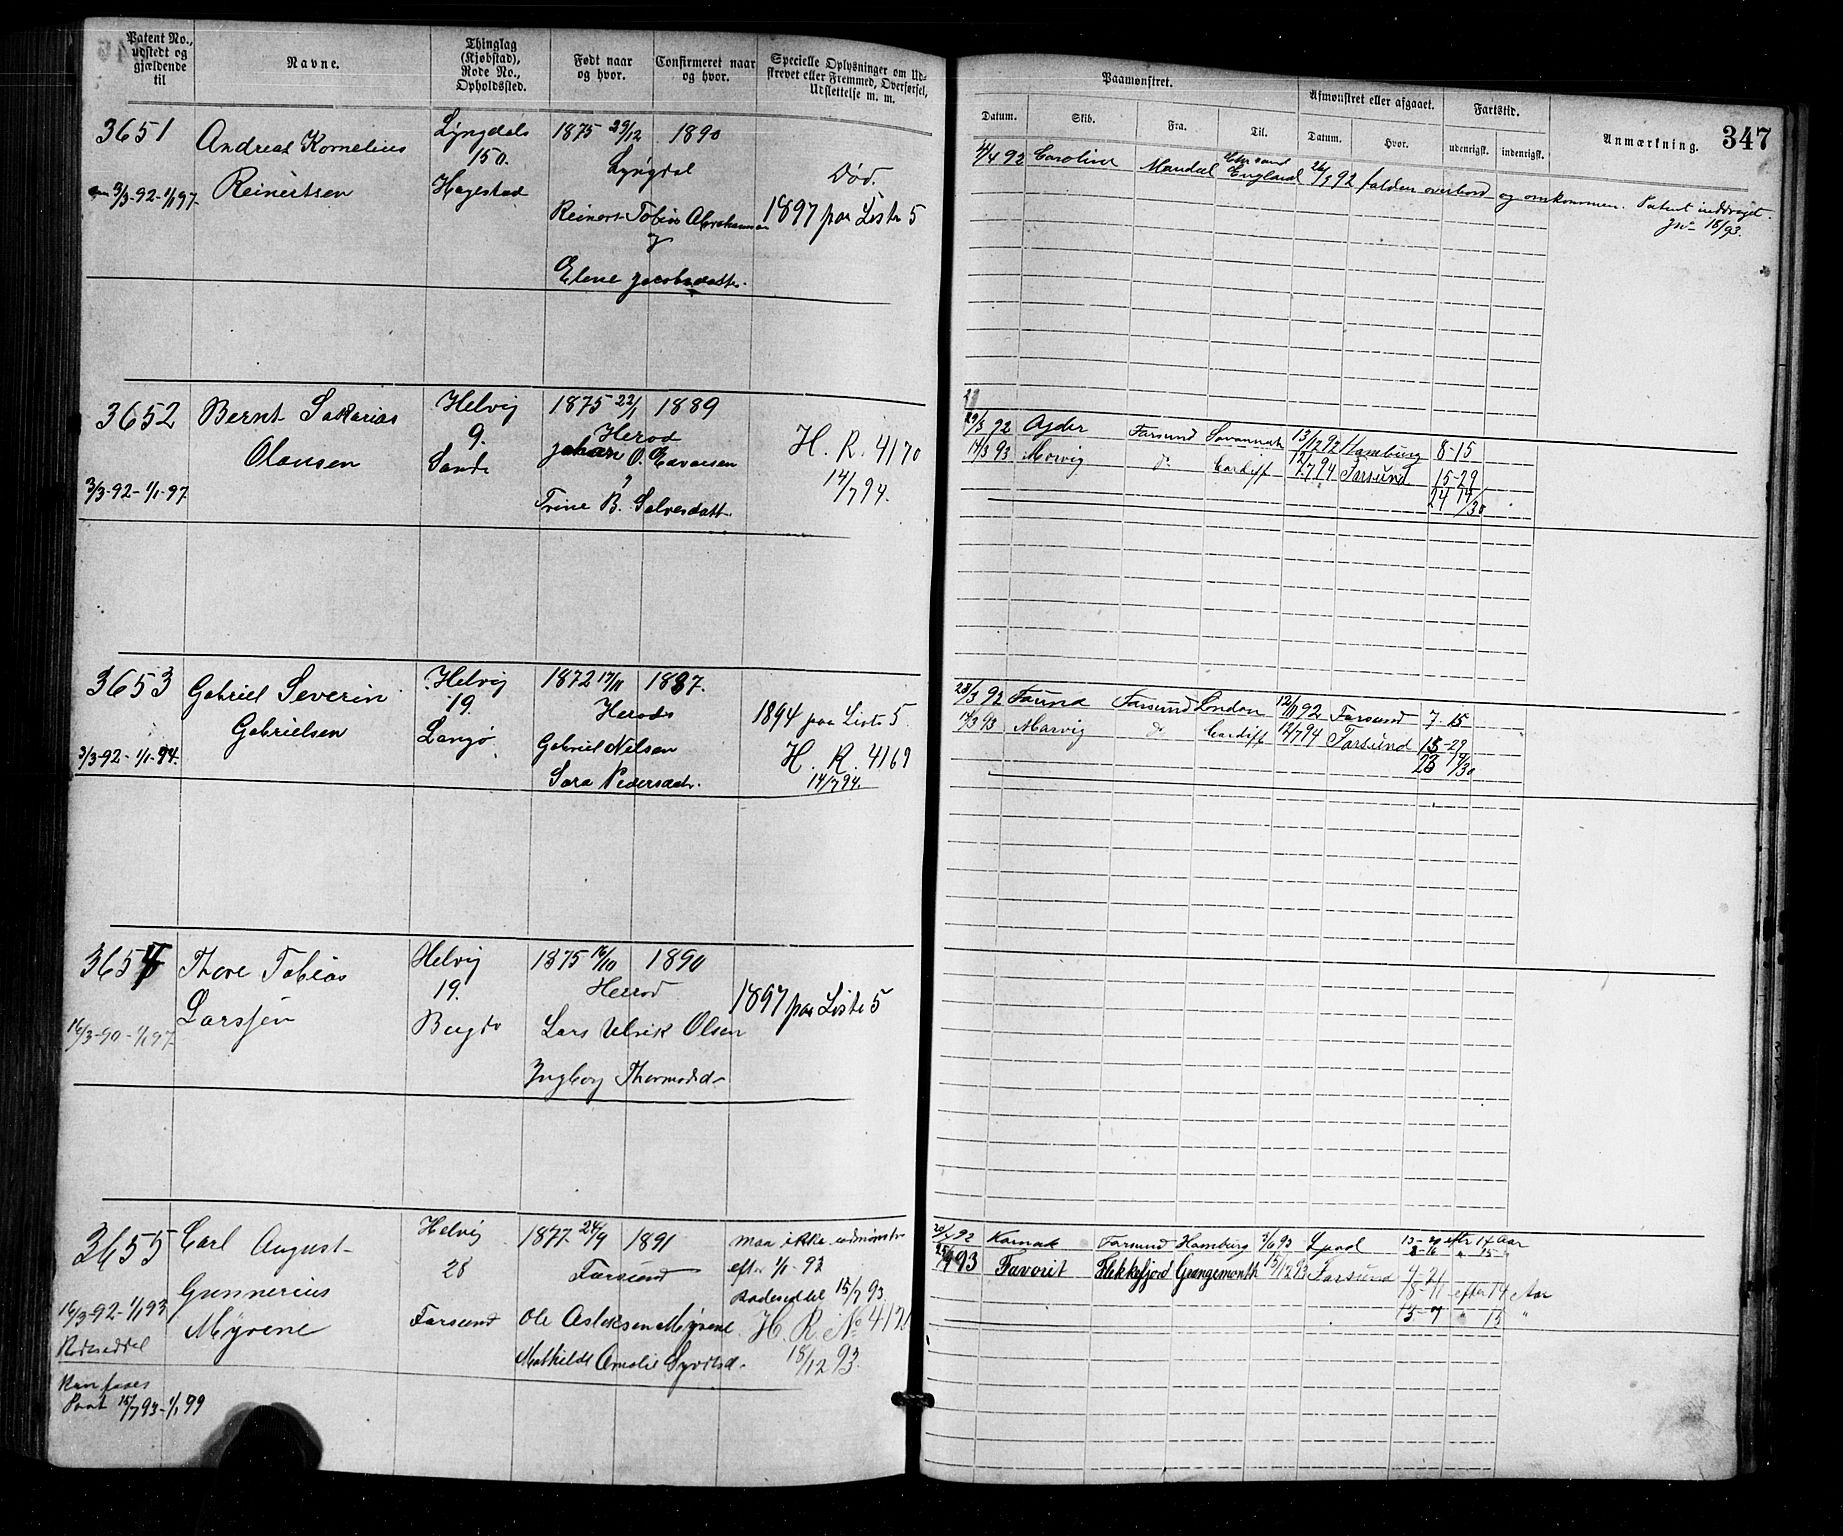 Patent No., udstedt og gjældende til
Navne.
Thinglag (Kjøbstad), Rode No., Opholdssted.
Født naar og hvor.
Confirmeret naar og hvor.
Specielle Oplysninger om Udskrevet eller Fremmed, Overførsel, Udslettelse m. m.
Paamønstret.
Datum.
Skib.
Fra.
Til.
Afmønstret eller afgaaet.
Datum.
Hvor.
Fartstid.
udenrigsk.
indenrigsk.
Anmærkning.
347
3651 Andreas Kornelius Lyngdals 1875 29/12 1890
150. Lyngdal Død.
3/3-92-1/1 97. Reinertsen Hagestad
Reinert Tobias Abrahamsen 1897 paa Liste 5
og
Elene Jacobsdatter.
4/4 92 Caroline Mandal England 26/7 92 falden overbord og omkommen. Patent inddraget.
Jnr 16/93.
3652 Bernt Sakarias Helvig 1875 22/1 1889
Olausen 9. Herod H. R. 4170
Sande Johan O. Edvarsen 14/7 94.
3/3-92-1/1-97 Trine B. Salvesdatt.
29/3 92 Agder Farsund Savannah 13/12 92 Hamburg 8-15
17/3 93 Morvig do Cardiff 12/7 94 Farsund 15-29
24 14/30
3653 Gabriel Severin Helvig 1872 17/11 1887.
Gabrielsen 19. Herods 1894 paa Liste 5
Langø Gabriel Nilsen H. R. 4169
3/3-92-1/1-94. Sara Pedersdtr. 14/7 94.
28/3 92 Farsund London 12/11 92 Farsund 7-15
17/3 93 Marvig do Cardiff 12/7 94 Farsund 15-29
23 14/30
3654 Thore Tobias Helvig 1875 16/10 1890
Larssen 19. Herrod 1897 paa Liste 5
16/3-90-1/1 97 Lars Ulrik Olsen
Ingborg Thormodsd
3655 Carl August Helvig 1877 24/9 1891 maa ikke udmønstr
Gunnerius 28 Farsund efter 1/1-93
16/3-92-1/1 93 Myrene Farsund Rodeseddel 15/7 93.
Rodeseddel Ole Aslaksen Myrene H. R. No 4121
Mathilde Amalie Syvertsd. 18/12 93.
Kan faaes
Pant 15/7 93-1/1 99
92 Karnak Farsund Hamburg 3/6 93 13-29 efter 14 Aar
8-16 " 15 "
93 Favorit Flekkefjord Grangemouth 15/12 93 Farsund 4-21
18-11 efter 14 Aar
13-9 " 15 "